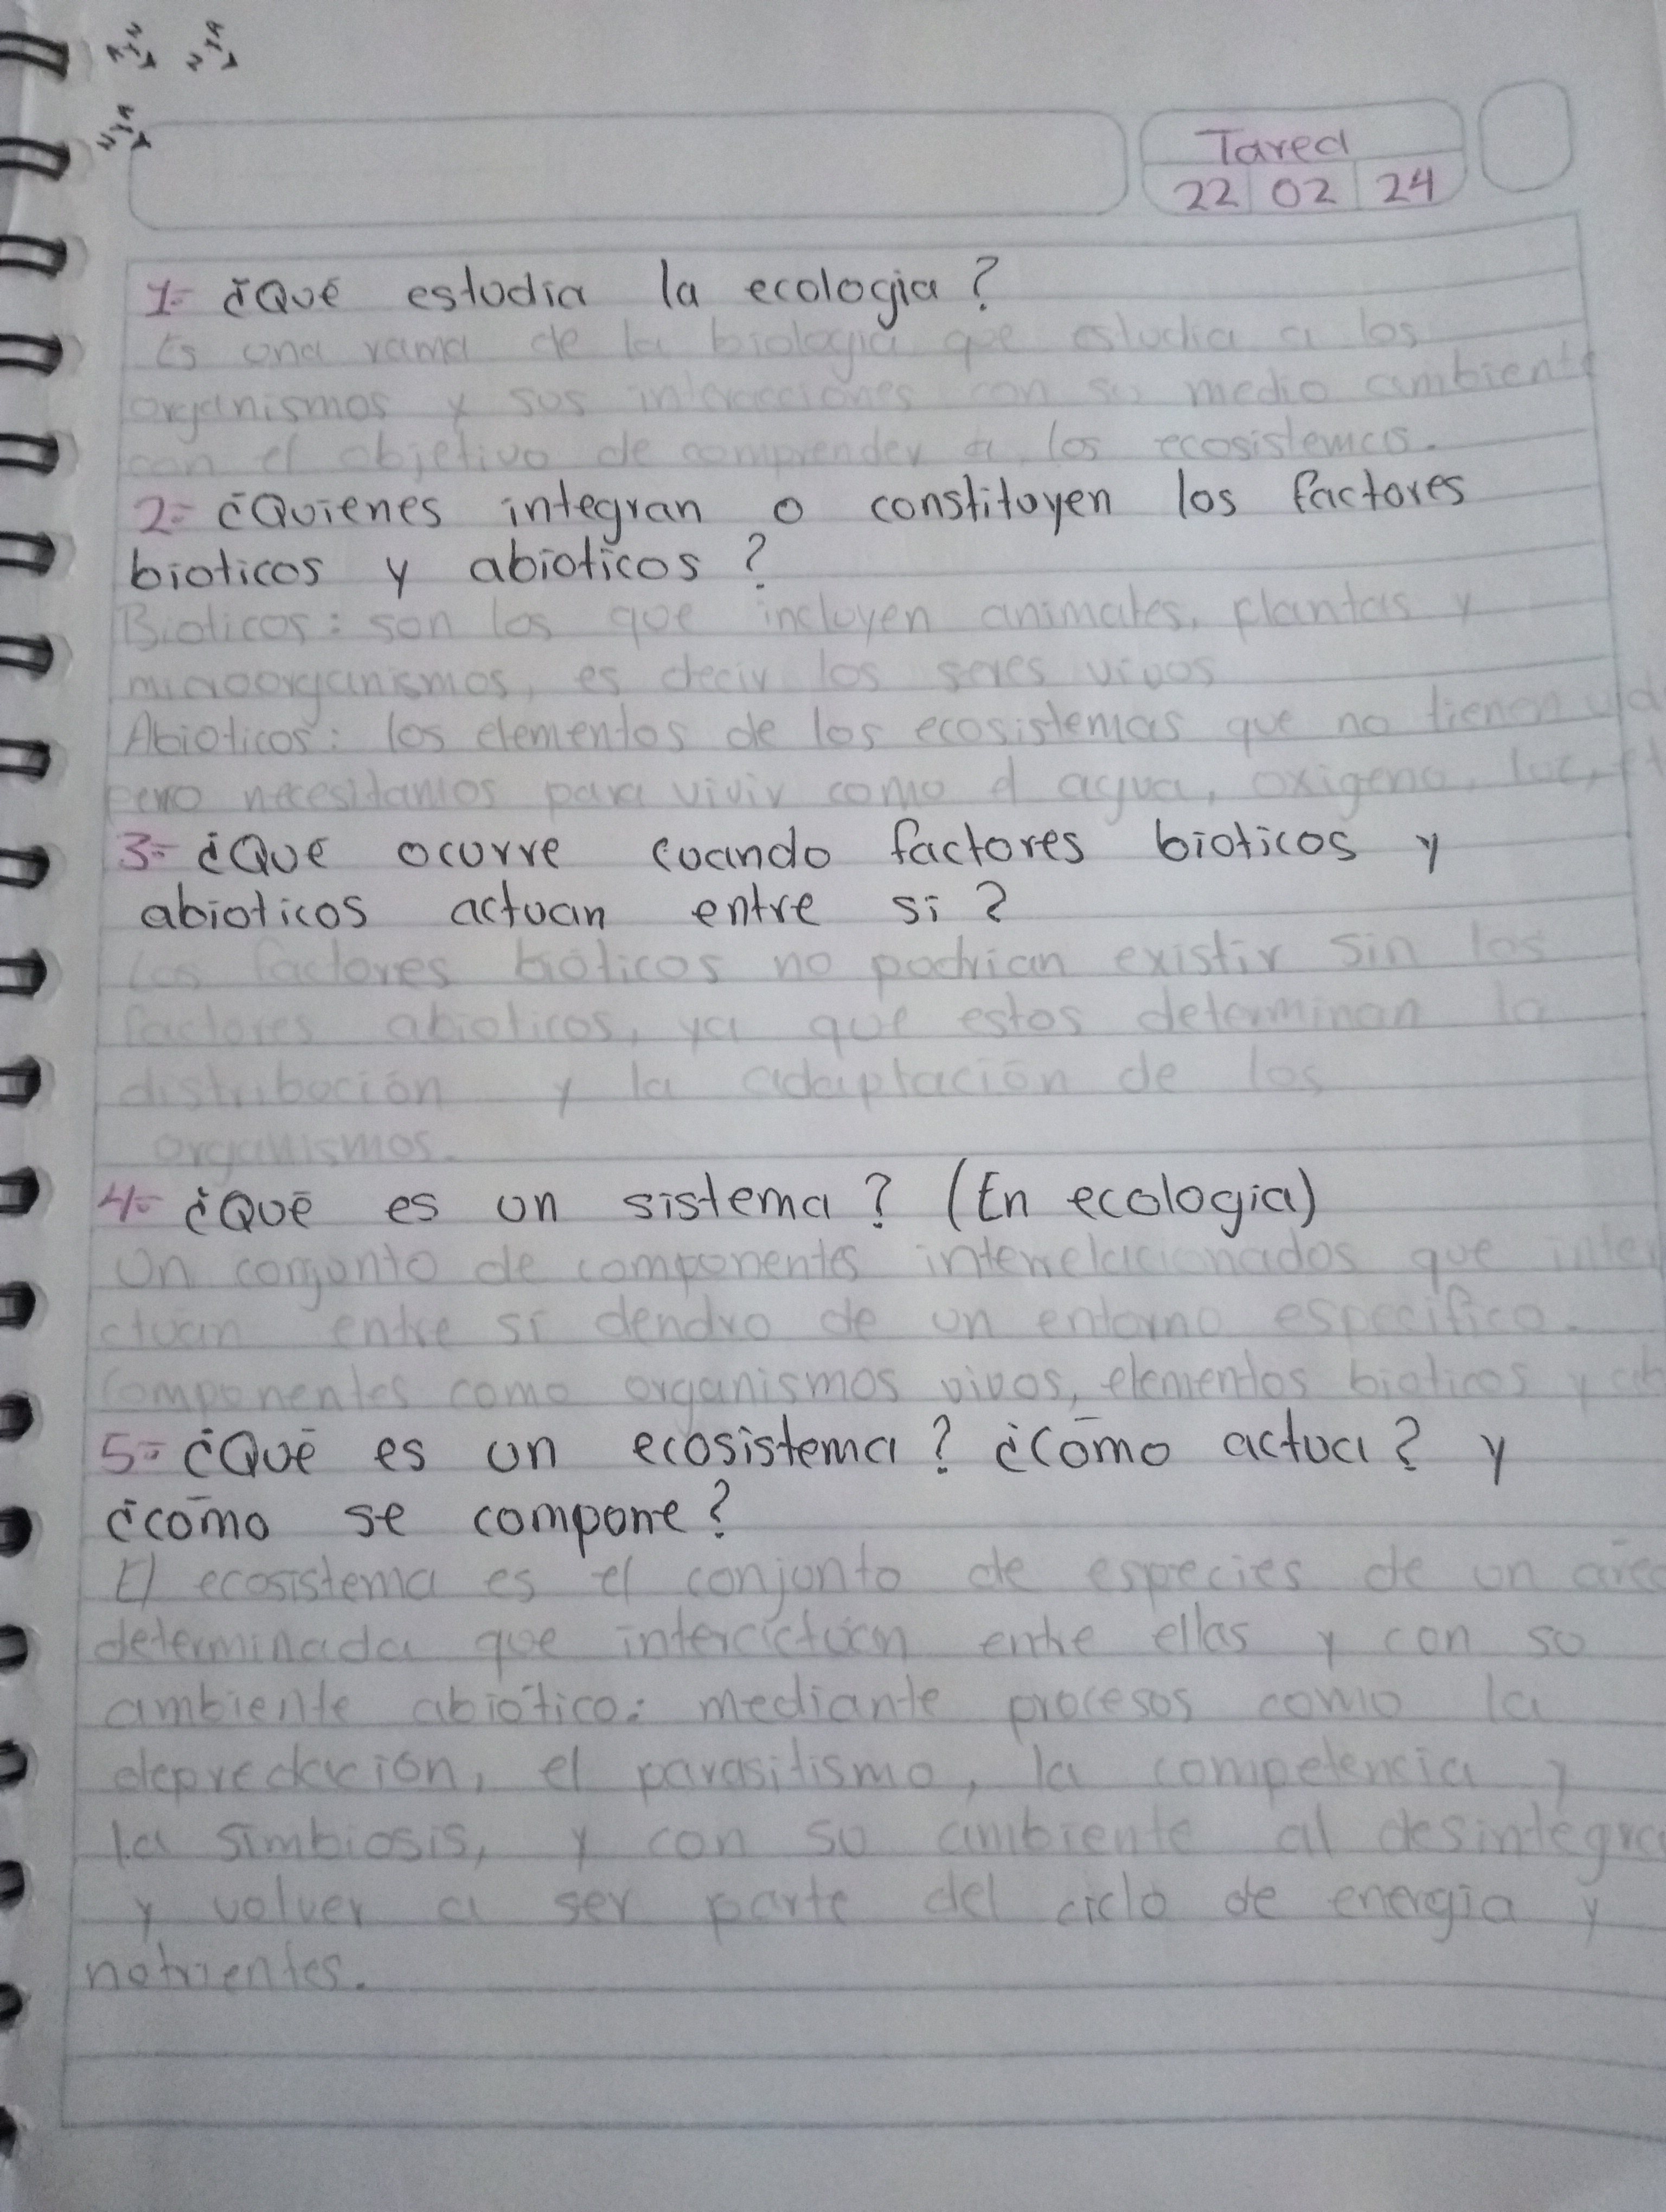 Tarea
22 02 24
1- ¿Qué estudia la ecologia?
Es una rama de la biologia que estudia a los
organismos y sus interacciones con su medio ambiente
con el objetivo de comprender a los ecosistemas.
2- ¿Quienes integran o constituyen los factores
bioticos y abioticos?
Bioticos: son los que incluyen animales, plantas y
microorganismos, es decir los seres vivos
Abioticos: los elementos de los ecosistemas que no tienen vid
pero necesitamos para vivir como el agua, oxigeno, luz,
3- ¿Que ocurre cuando factores bioticos y
abioticos actuan entre si?
Los factores bióticos no podrian existir sin los
factores abioticos, ya que estos determinan la
distribución y la adaptación de los
organismos.
4- ¿Qué es un sistema? (En ecologia)
Un conjunto de componentes interrelacionados que inter
actuan entre sí dendro de un entorno especifico.
Componentes como organismos vivos, elementos bioticos y ab
5- ¿Qué es un ecosistema? ¿Cómo actua? y
¿cómo se compone?
El ecosistema es el conjunto de especies de un area
determinada que interactúan entre ellas y con su
ambiente abiótico: mediante procesos como la
depredación, el parasitismo, la competencia y
la simbiosis, y con su ambiente al desintegra
y volver a ser parte del ciclo de energia y
nutrientes.